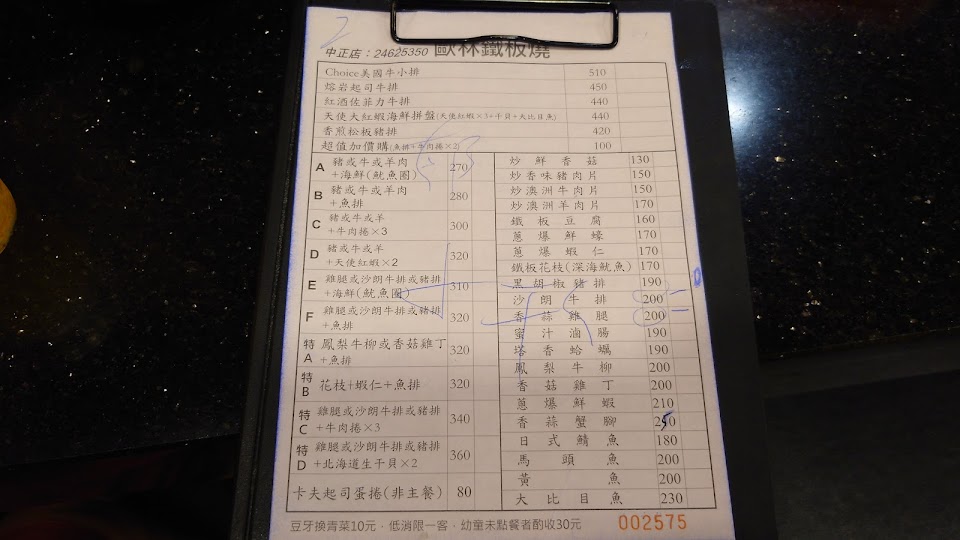 2
中正店：24625350 歐林鐵板燒
Choice美國牛小排 510
熔岩起司牛排 450
紅酒佐菲力牛排 440
天使大紅蝦海鮮拼盤(天使紅蝦×3+干貝+大比目魚) 440
香煎松板豬排 420
超值加價購(魚排+牛肉捲×2) 100
A 豬或牛或羊肉
+海鮮(魷魚圈) 270
B 豬或牛或羊肉
+魚排 280
C 豬或牛或羊
+牛肉捲×3 300
D 豬或牛或羊
+天使紅蝦×2 320
E 雞腿或沙朗牛排或豬排
+海鮮(魷魚圈) 310
F 雞腿或沙朗牛排或豬排
+魚排 320
特A 鳳梨牛柳或香菇雞丁
+魚排 320
特B 花枝+蝦仁+魚排 320
特C 雞腿或沙朗牛排或豬排
+牛肉捲×3 340
特D 雞腿或沙朗牛排或豬排
+北海道生干貝×2 360
卡夫起司蛋捲(非主餐) 80
炒鮮香菇 130
炒香味豬肉片 150
炒澳洲牛肉片 150
炒澳洲羊肉片 170
鐵板豆腐 160
蔥爆鮮蠔 170
蔥爆蝦仁 170
鐵板花枝(深海魷魚) 170
黑胡椒豬排 190
沙朗牛排 200
香蒜雞腿 200
蜜汁滷腸 190
塔香蛤蠣 190
鳳梨牛柳 200
香菇雞丁 200
蔥爆鮮蝦 210
香蒜蟹腳 250
日式鯖魚 180
馬頭魚 200
黃魚 200
大比目魚 230
豆芽換青菜10元，低消限一客，幼童未點餐者酌收30元
002575